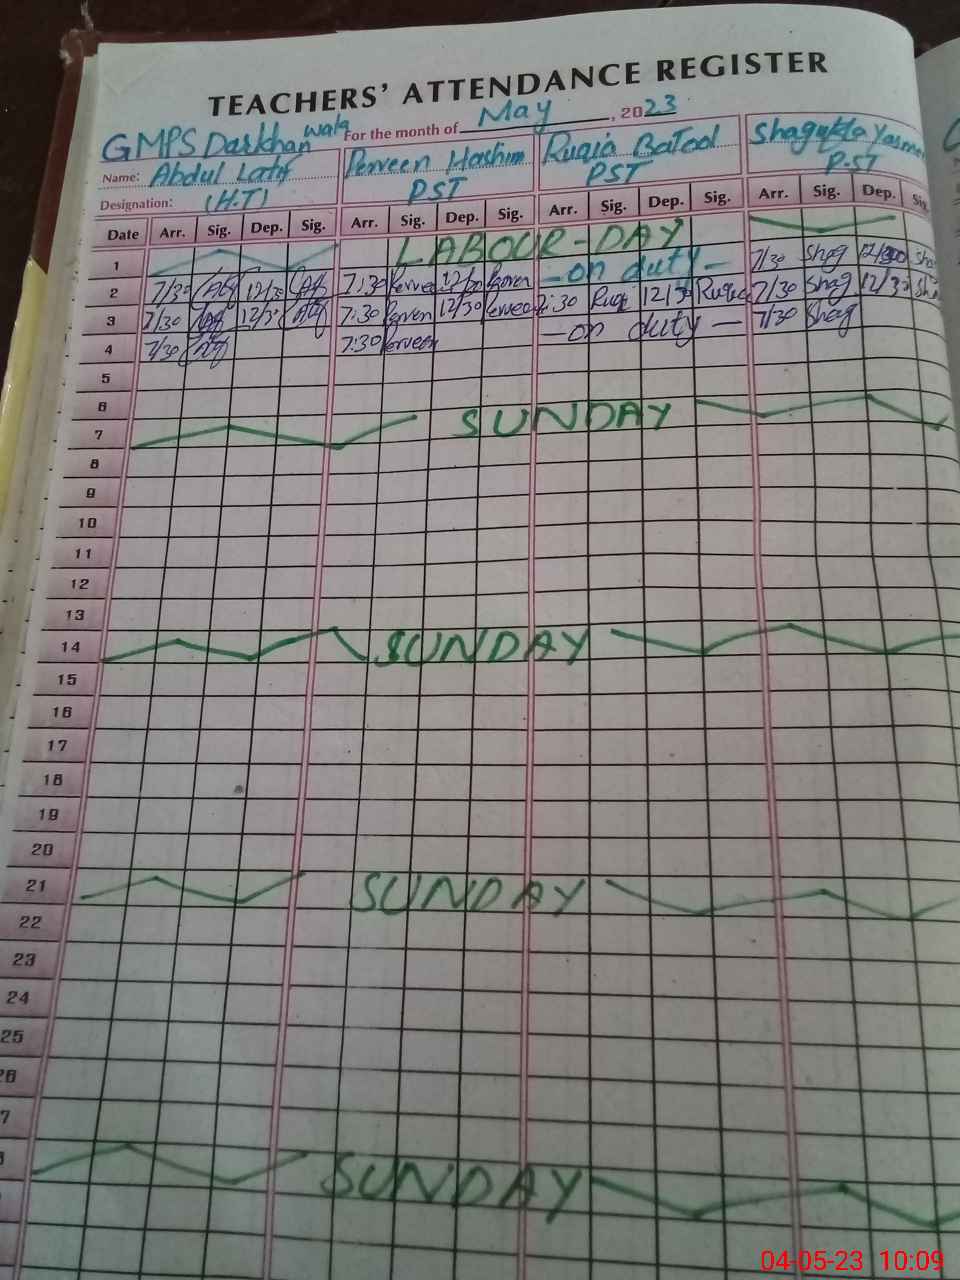 TEACHERS' ATTENDANCE REGISTER
GMPS Darkhan wala For the month of May, 2023
Name: Abdul Latif Perveen Hashim Ruqia Batool Shagufta Yasme
Designation: (H.T) PST PST P.ST
Date Arr. Sig. Dep. Sig. Arr. Sig. Dep. Sig. Arr. Sig. Dep. Sig. Arr. Sig. Dep. Sig.
1 LABOUR-DAY
2 7/30 12/30 7:30 12/30 - on duty - 7/30 Shag
3 7/30 12/30 7:30 12/30 7:30 Ruqi 12/30 Ruqia 7/30 Shag 12/30
4 7/30 7:30 Perveen - on duty - 7/30 Shag
5
6
7 SUNDAY
8
9
10
11
12
13
14 SUNDAY
15
16
17
18
19
20
21 SUNDAY
22
23
24
25
26
7
SUNDAY
04-05-23 10:09